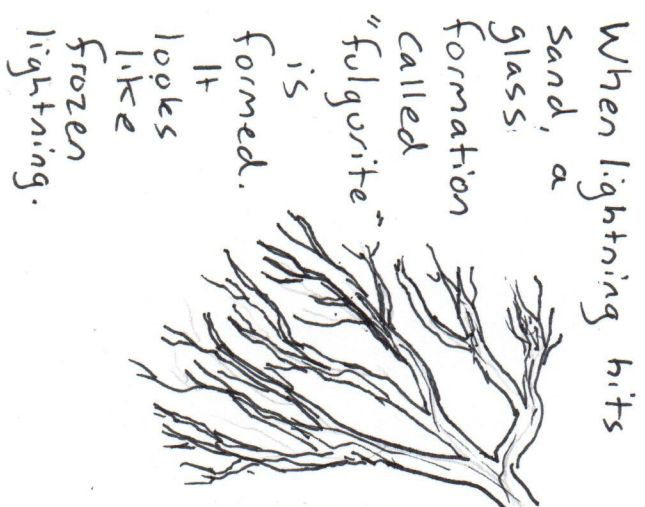 When lightning hits
sand, a
glass
formation
called
"fulgurite"
is
formed.
It
looks
like
frozen
lightning.